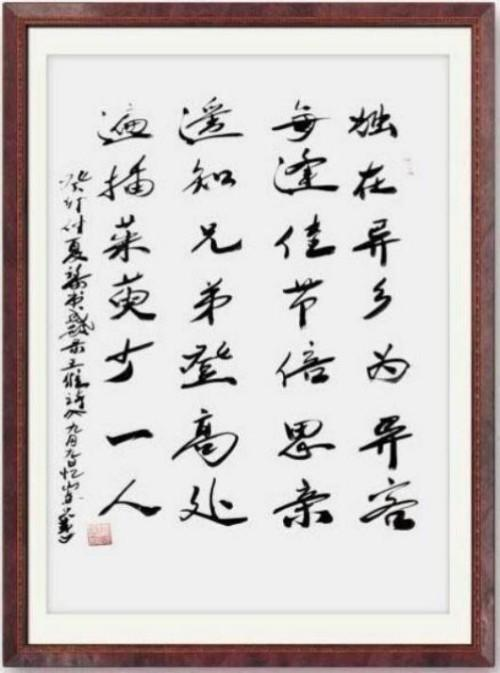 独在异乡为异客
每逢佳节倍思亲
遥知兄弟登高处
遍插茱萸少一人
癸卯仲夏 王维诗 九月九日忆山东兄弟